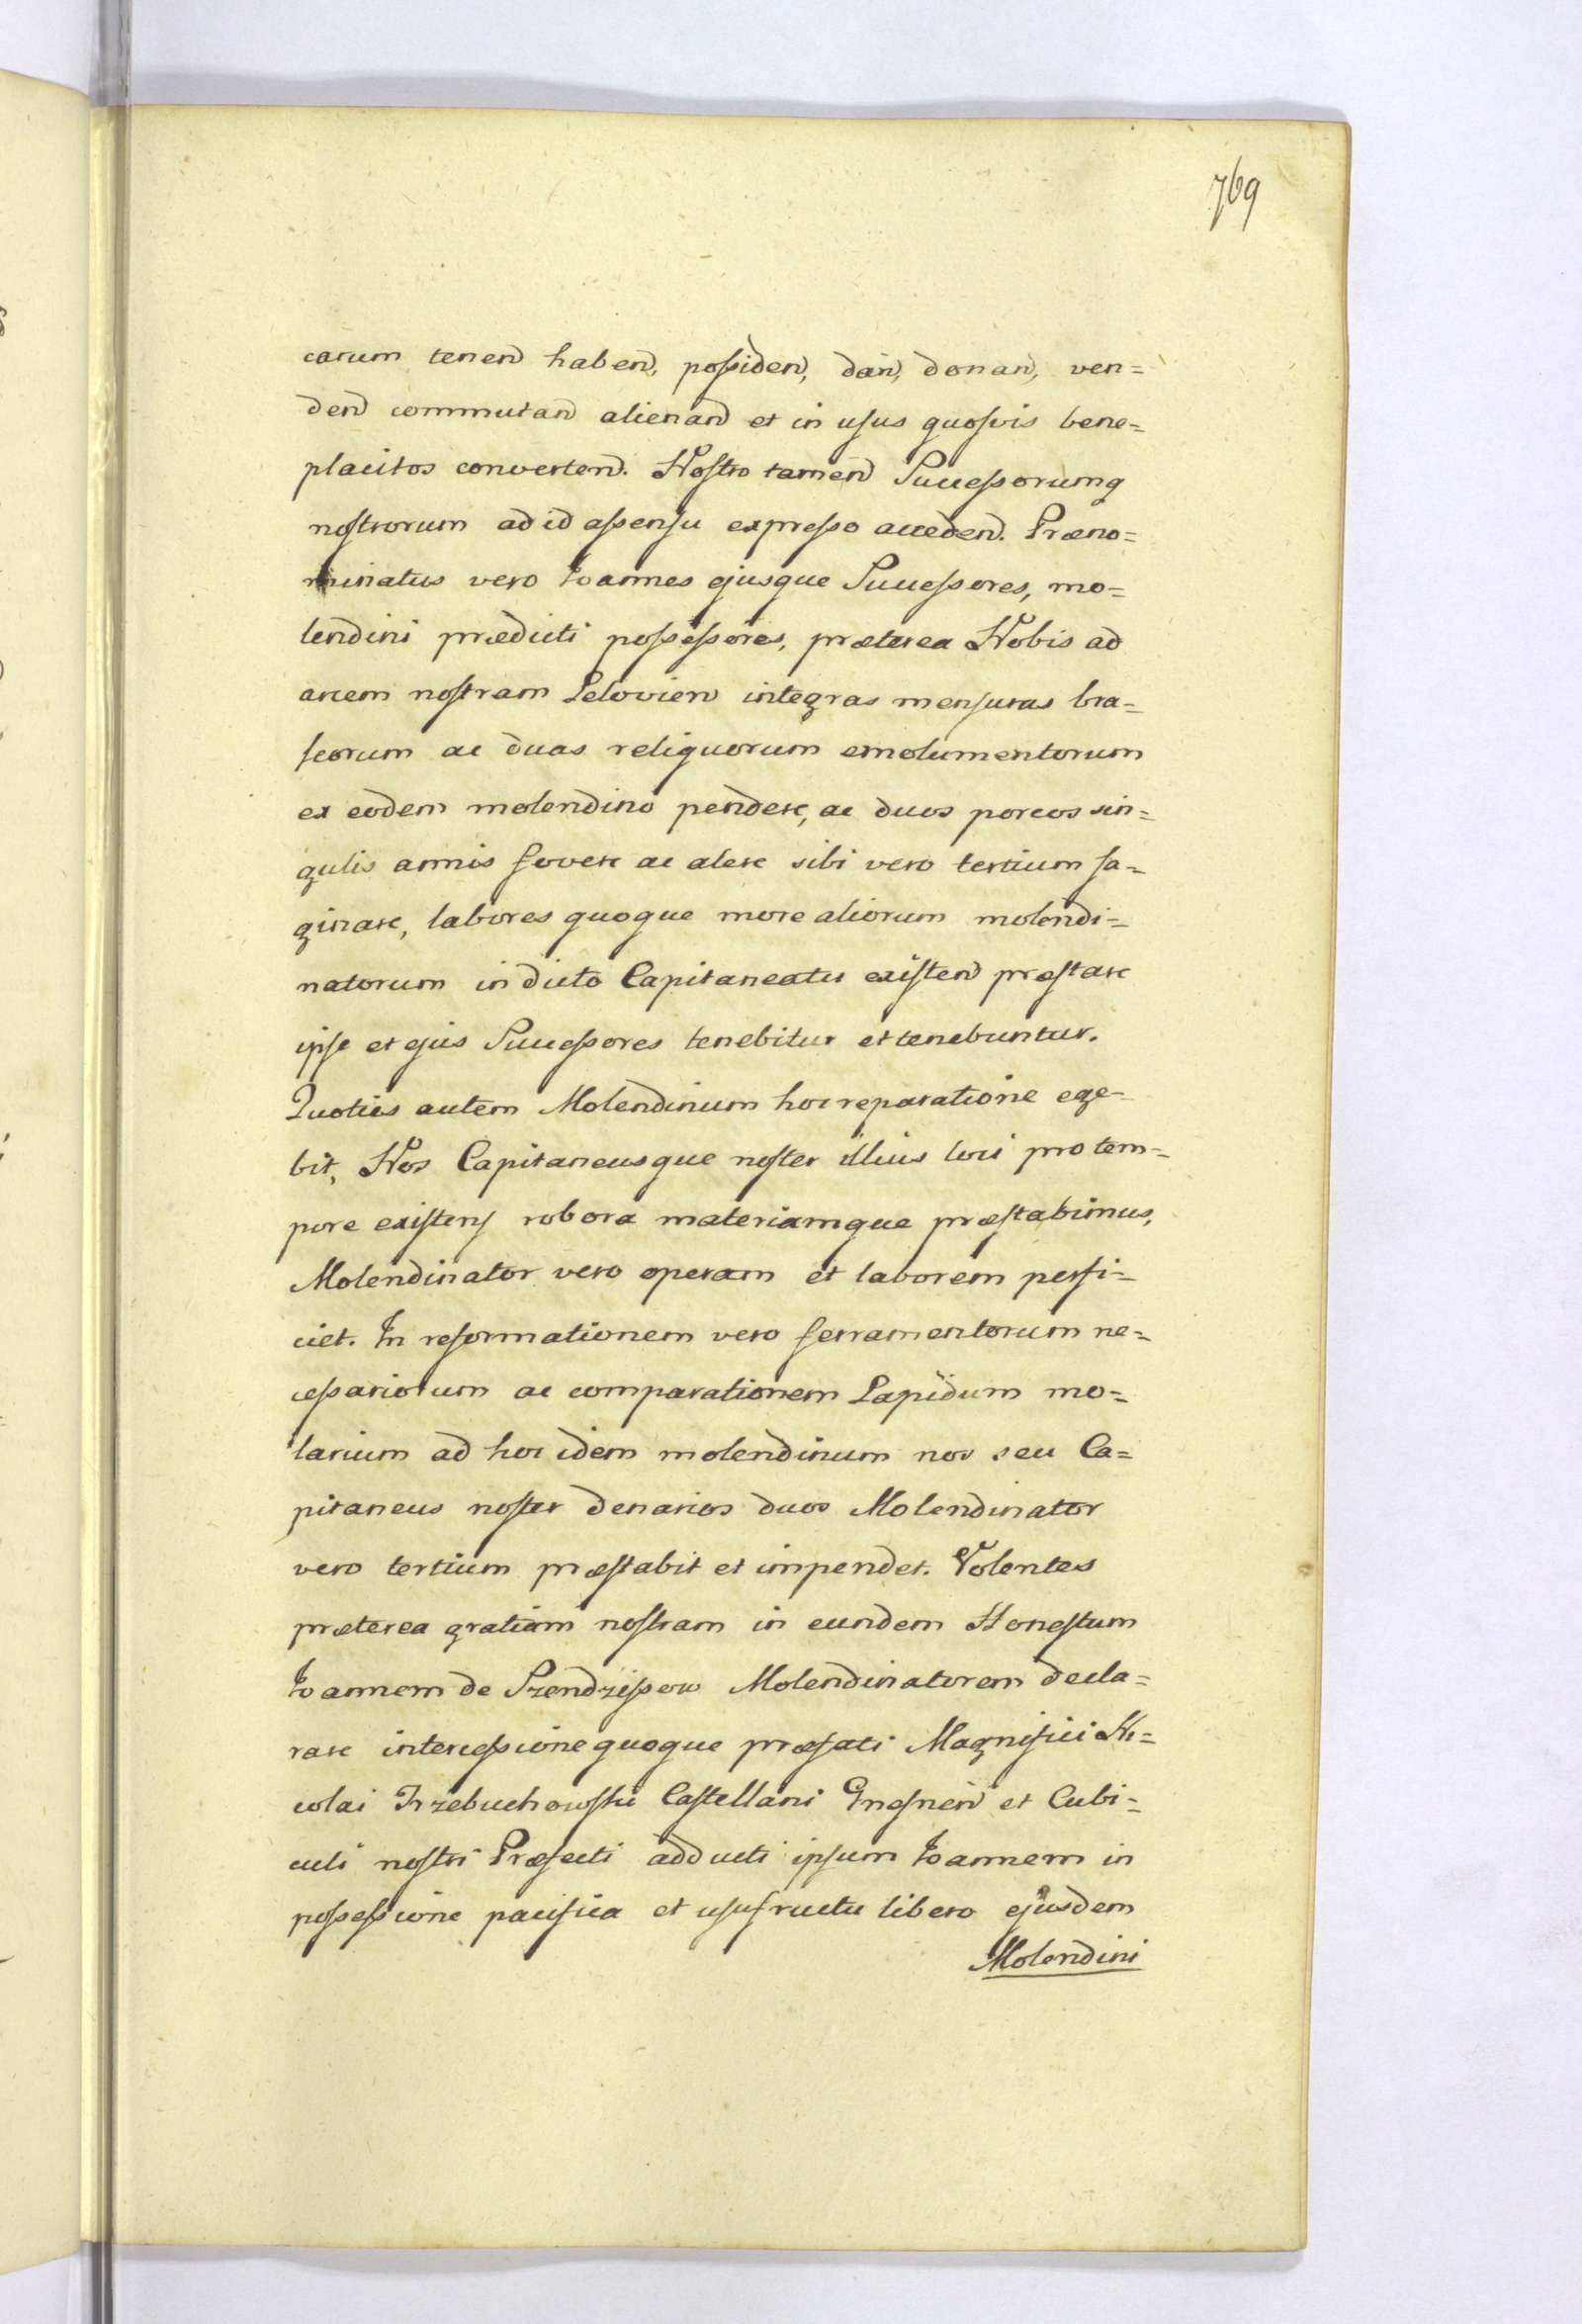 769
earum tenend habend, possiden, dan, donan, ven=
dend commutand alienand et in usus quosvis bene=
placitos convertend. Nostro tamen Successorumq
nostrorum ad id assensu expresso acceden. Præno=
minatus vero Ioannes ejusque Successores, mo=
lendini prædicti possessores, præterea Nobis ad
arcem nostram Lelovien integras mensuras bra=
seorum ac duas reliquorum emolumentorum
ex eodem molendino pendere, ac duos porcos sin=
gulis annis fovere ac alere sibi vero tertium sa=
ginare, labores quoque more aliorum molendi=
natorum in dicto Capitaneatu existend præstare
ipse et ejus Successores tenebitur et tenebuntur.
Quoties autem Molendinum hoc reparatione ege=
bit, Nos Capitaneusque noster illius loci pro tem=
pore existens robora materiamque præstabimus,
Molendinator vero operam et laborem perfi=
ciet. In reformationem vero ferramentorum ne=
cessariorum ac comparationem Lapidum mo=
larium ad hoc idem molendinum nos seu Ca=
pitaneus noster denarios duos Molendinator
vero tertium præstabit et impendet. Volentes
præterea gratiam nostram in eundem Honestum
Ioannem de Srendzissow Molendinatorem decla=
rare intercessione quoque præfati Magnifici Ni=
colai Trzebuchowski Castellani Gnesnen et Cubi=
culi nostri Præfecti adducti ipsum Ioannem in
possessione pacifica et usufructu libero ejusdem
Molendini